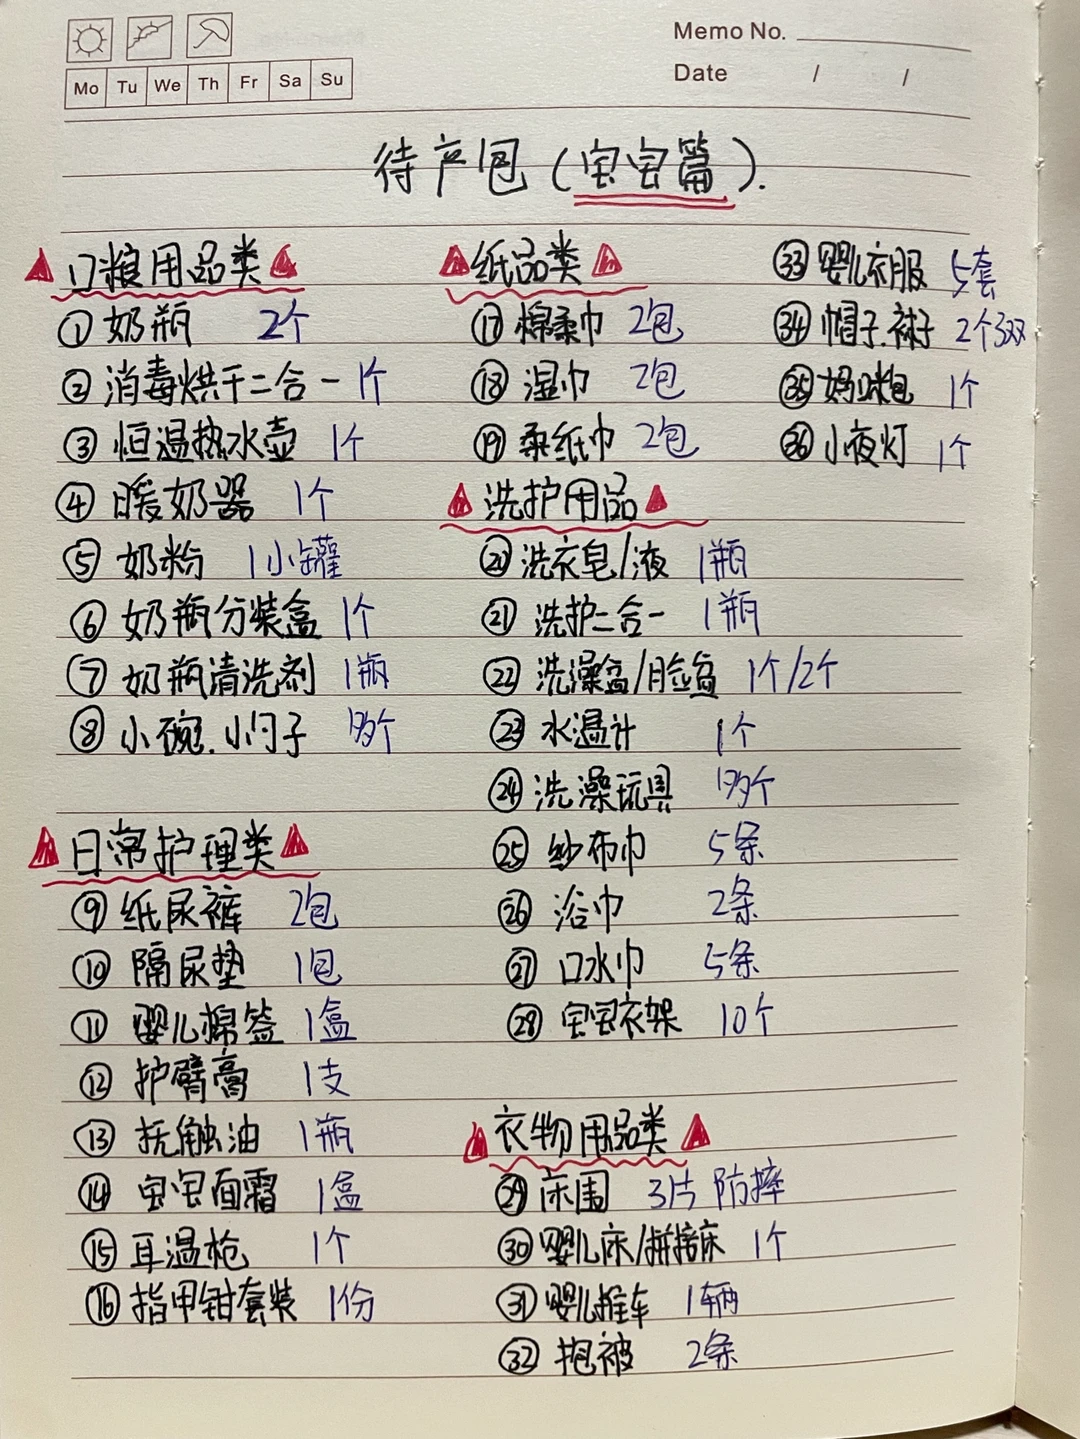 Memo No.
Mo Tu We Th Fr Sa Su
Date / /
待产包(宝宝篇).
口粮用品类
①奶瓶 2个
②消毒烘干二合一 1个
③恒温热水壶 1个
④暖奶器 1个
⑤奶粉 1小罐
⑥奶瓶分装盒 1个
⑦奶瓶清洗剂 1瓶
⑧小碗.小勺子 1个
日常护理类
⑨纸尿裤 2包
⑩隔尿垫 1包
⑪婴儿棉签 1盒
⑫护臂膏 1支
⑬抚触油 1瓶
⑭宝宝面霜 1盒
⑮耳温枪 1个
⑯指甲钳套装 1份
纸品类
⑰棉柔巾 2包
⑱湿巾 2包
⑲柔纸巾 2包
洗护用品
⑳洗衣皂/液 1瓶
㉑洗护二合一 1瓶
㉒洗澡盆/脸盆 1个/2个
㉓水温计 1个
㉔洗澡玩具 1个
㉕纱布巾 5条
㉖浴巾 2条
㉗口水巾 5条
㉘宝宝衣架 10个
衣物用品类
㉙床围 3片 防摔
㉚婴儿床/拼接床 1个
㉛婴儿推车 1辆
㉜抱被 2条
㉝婴儿衣服 5套
㉞帽子.袜子 2个3双
㉟妈咪包 1个
㊱小夜灯 1个